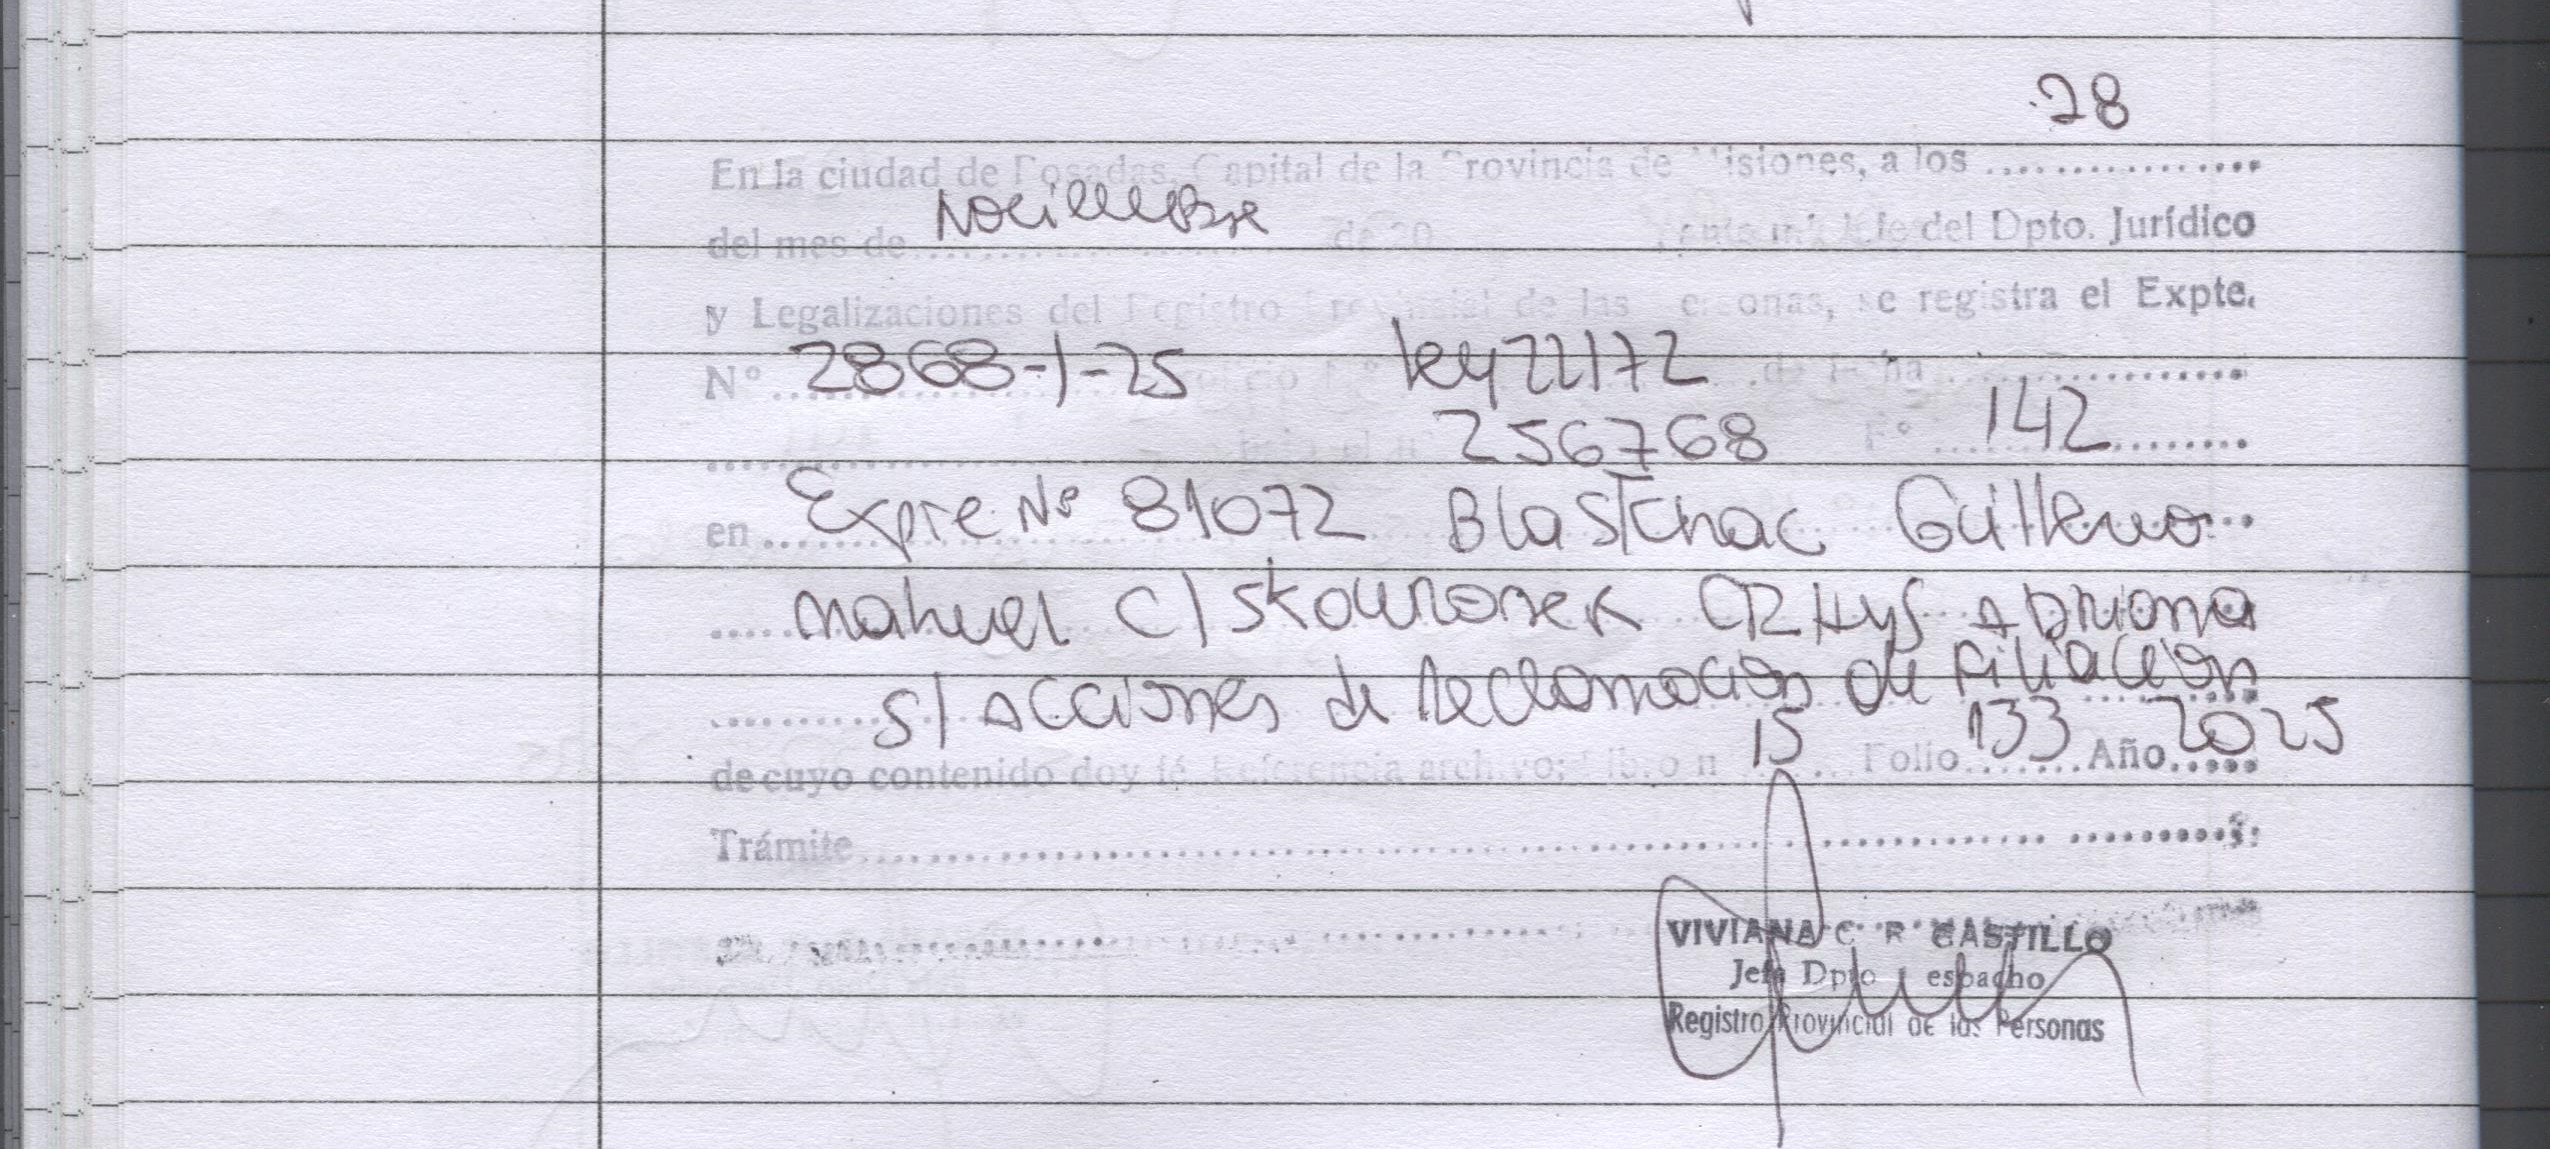 28
En la ciudad de Posadas, Capital de la Provincia de Misiones, a los
del mes de Noviembre de 20 del Dpto. Jurídico
y Legalizaciones del Registro Provincial de las Personas, se registra el Expte.
Nº 2868-1-25 oficio Nº ley 22172 de fecha
256768 Fº 142
en Expte Nº 81072 Blastchac Guillermo
Nahuel C/ Skowronek Adriana
S/ Acciones de reclamación de Filiación
de cuyo contenido doy fé. Referencia archivo: Libro n 15 Folio 133 Año 2025
Trámite
VIVIANA C. R. CASTILLO
Jefa Dpto Despacho
Registro Provincial de las Personas